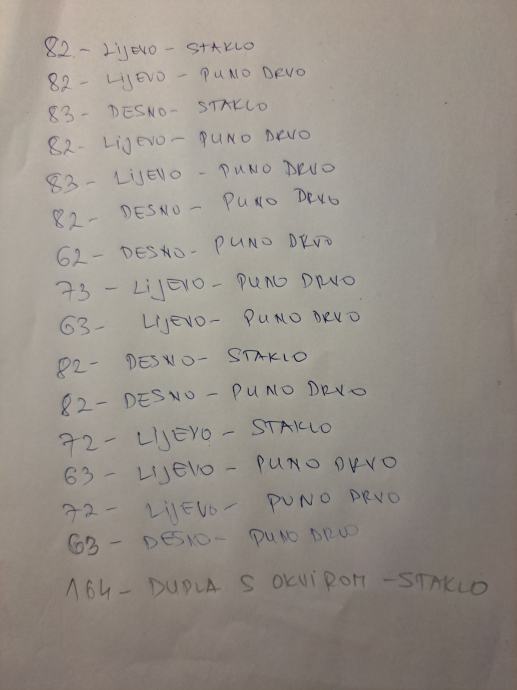 82 - Lijevo - STAKLO
82 - Lijevo - PUNO DRVO
83 - DESNO - STAKLO
82 - Lijevo - PUNO DRVO
83 - Lijevo - PUNO DRVO
82 - DESNO - PUNO DRVO
62 - DESNO - PUNO DRVO
73 - Lijevo - PUNO DRVO
63 - Lijevo - PUNO DRVO
82 - DESNO - STAKLO
82 - DESNO - PUNO DRVO
72 - Lijevo - STAKLO
63 - Lijevo - PUNO DRVO
72 - Lijevo - PUNO DRVO
63 - DESNO - PUNO DRVO
164 - DUPLA S OKVIROM - STAKLO